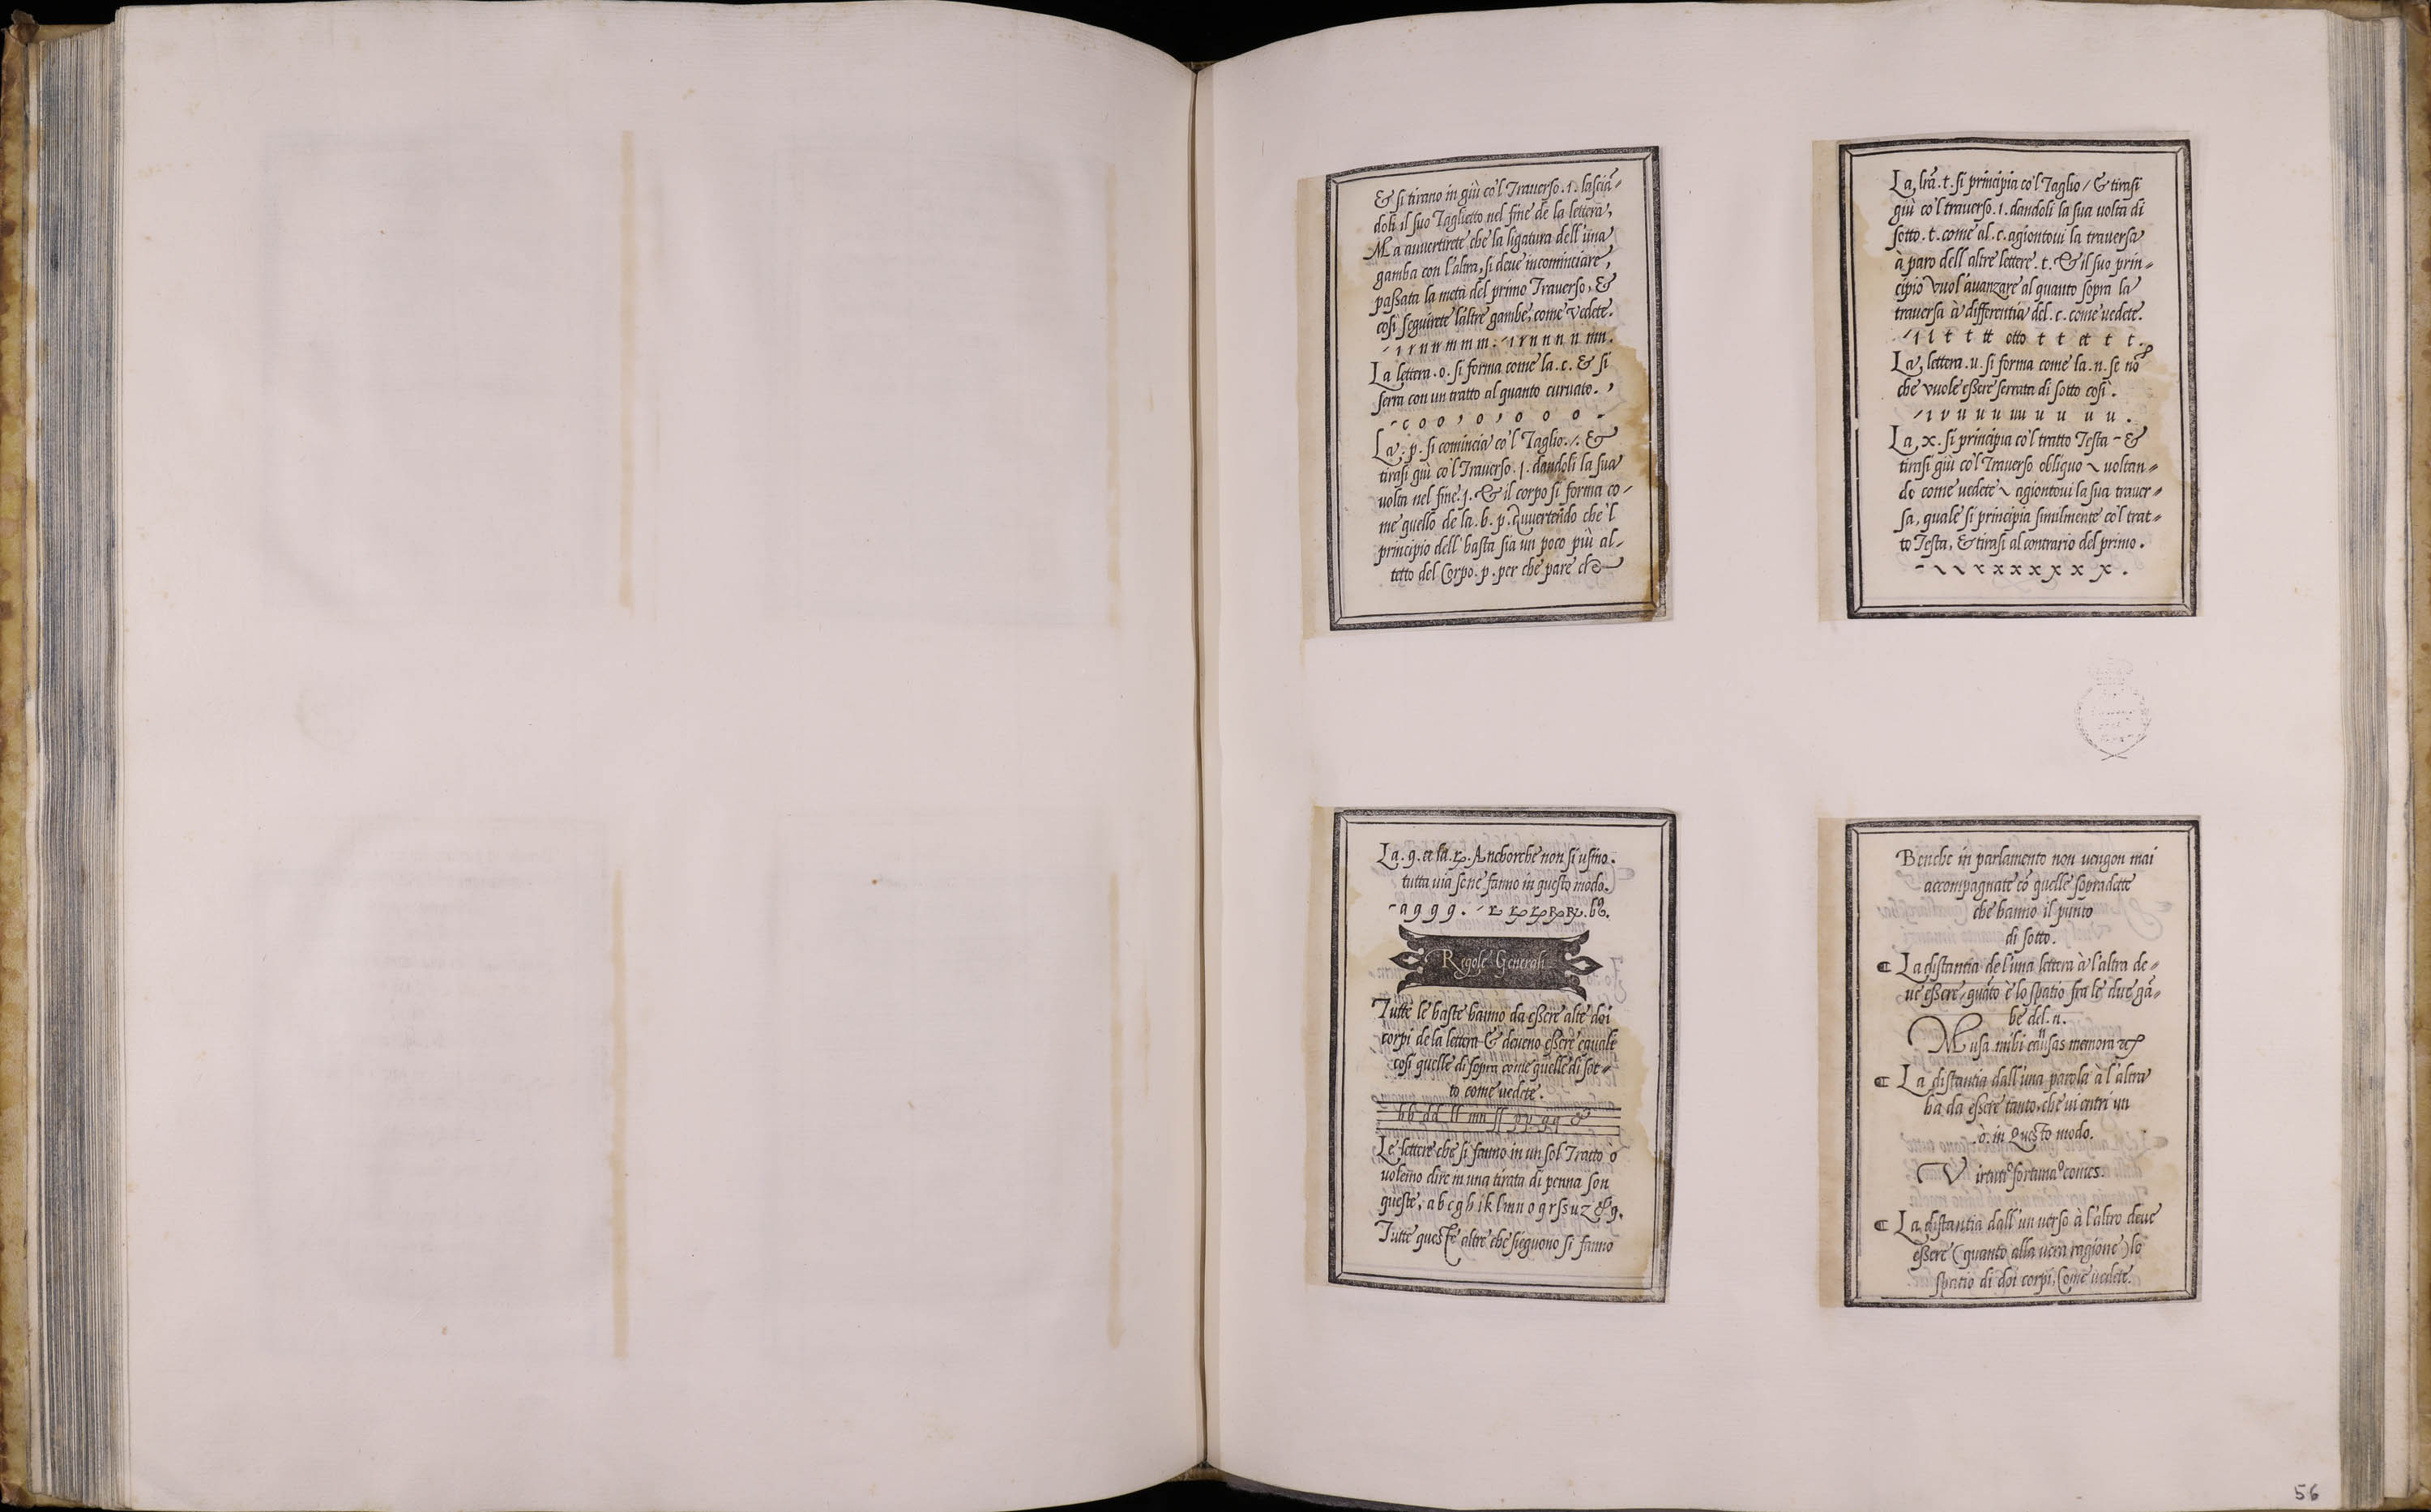 & si tirano in giù co'l Trauerso .ı. lasciā-
doli il suo Taglietto nel fine de la lettera,
Ma auuertirete che la ligatura dell'una
gamba con l'altra, si deue incominciare,
passata la metà del primo Trauerso, &
cosi seguirete l'altre gambe, come vedete.
La lettera .o. si forma come la .c. & si
serra con un tratto al quanto curuato. ,
- c o o , o , o o o -
La .p. si comincia co'l Taglio ./. &
tirasi giù co'l Trauerso .ſ. dandoli la sua
volta nel fine .ſ. & il corpo si forma co-
me quello de la .b. p. Auuertendo che'l
principio dell'hasta sia un poco più al-
tetto del Corpo .p. per che pare che
La lrā .t. si principia co'l Taglio / & tirasi
giù co'l trauerso .ı. dandoli la sua uolta di
sotto .t. come al .c. agiontoui la trauersa
à paro dell'altre lettere .t. & il suo prin-
cipio vuol'auanzare al quanto sopra la
trauersa à differentia del .c. come uedete.
-ı l t t tt otto t t et t t.
La lettera .u. si forma come la .n. se nō
che vuole essere serrata di sotto così.
La x. si principia co'l tratto Testa - &
tirasi giù co'l Trauerso obliquo \ voltan-
do come uedete \ agiontoui la sua trauer-
sa, quale si principia similmente co'l trat-
to Testa, & tirasi al contrario del primo.
- \ \ x x x x x x x x .
La .9. et la .ꝝ. Anchorche non si usino.
tutta uia sene fanno in questo modo.
Regole Generali
Tutte le haste hanno da essere alte doi
corpi de la lettera & deueno essere equale
cosi quelle di sopra come quelle di sot-
to come uedete.
hb dd ll mn ſſ pp gq &
Le lettere che si fanno in un sol Tratto ò
uolemo dire in una tirata di penna son
queste, a b c g h i k l m n o q r ſ s u z & 9.
Tutte queste altre che sieguono si fanno
Benche in parlamento non uengon mai
accompagnate cō quelle sopradette
che hanno il punto
di sotto.
¶ La distantia de l'una lettera à l'altra de-
ue essere, quāto è lo spatio fra le due gā-
be del .n.
Musa mihi caussas memora &c
¶ La distantia dall'una parola à l'altra
ha da essere tanto, che ui entri un
.o. in Questo modo.
Virtuti o fortuna o comes.
¶ La distantia dall'un uerso à l'altro deue
essere (quanto alla uera ragione) lo
spatio di doi corpi, Come uedete.
56